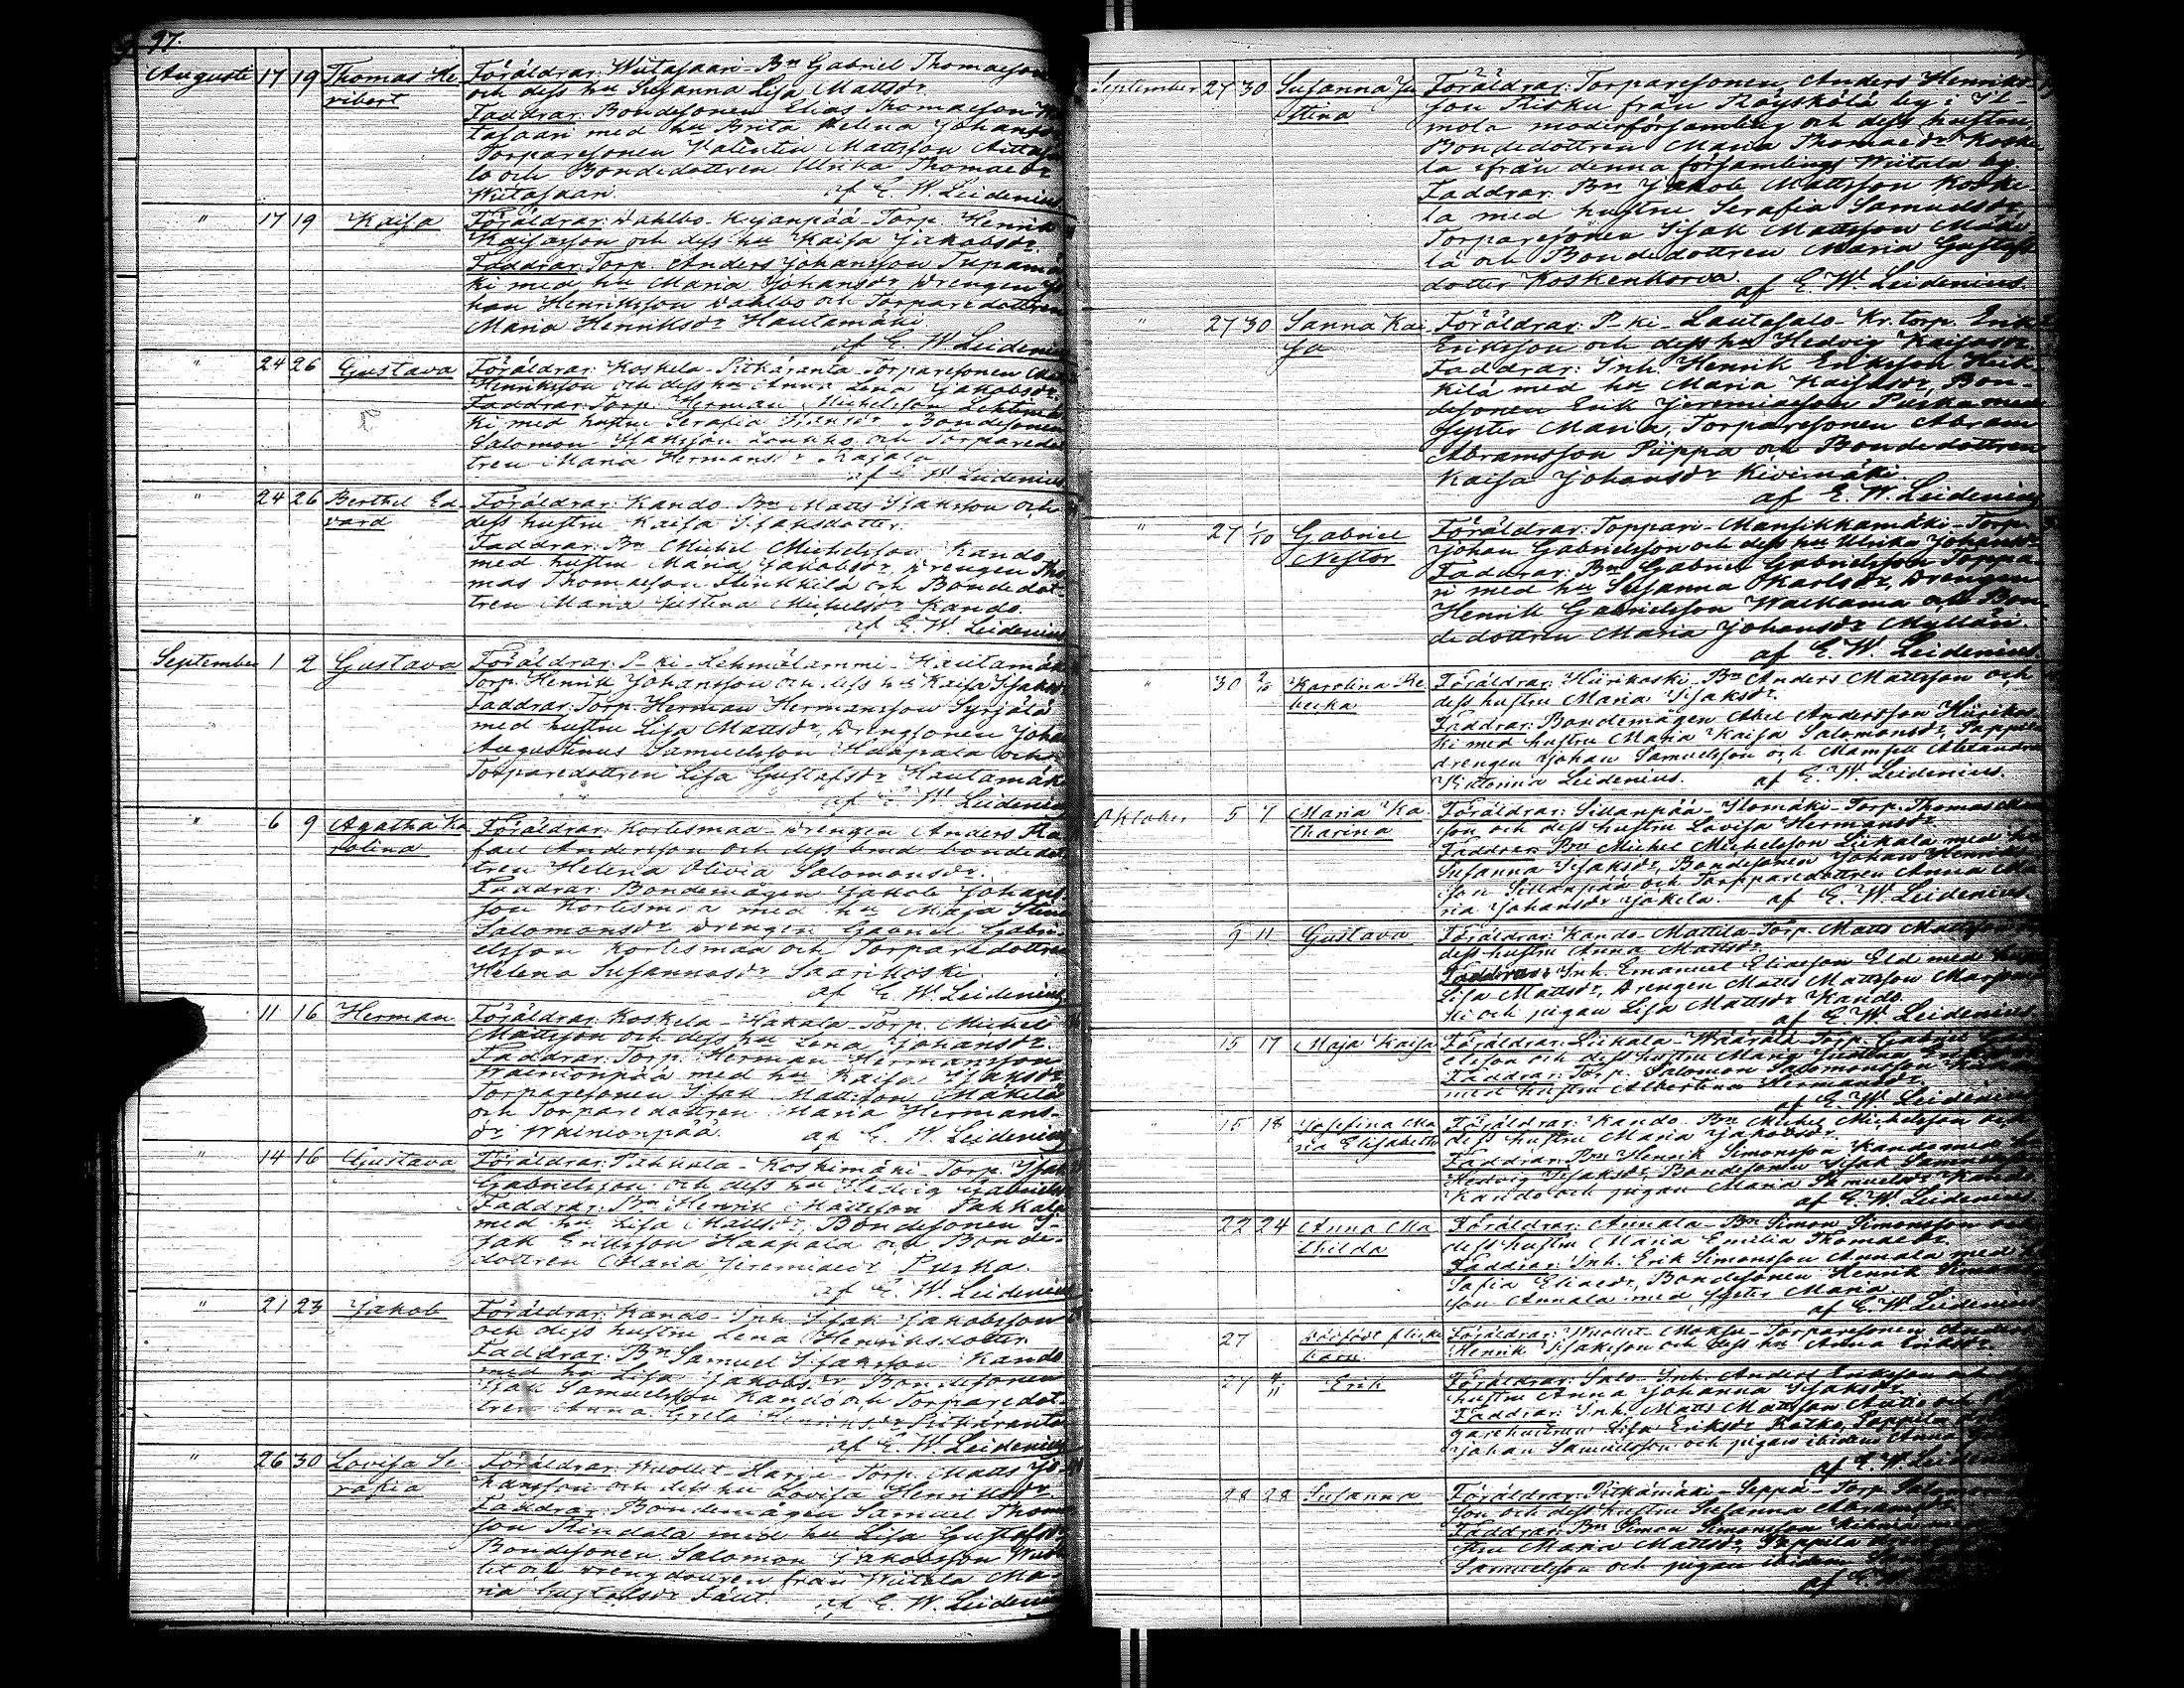 97.
Augusti 17 19 Thomas He- Föräldrar: Wiitasaari-Bn Gabriel Thomaesson
ribert och dess hu Susanna Lisa Mattsdr.
Faddrar: Bondesonen Elias Thomaesson Wii-
tasaari med hu Brita Helena Johansdr
Torparesonen Valentin Mattsson Aittasa-
lo och Bondedottren Ulrika Thomaedr
Wiitasaari. af E. W. Leidenius
" 17 19 Kaisa Föräldrar: Dahlbo-Kyanpää-Torp. Henrik
Kaisasson och dess hu Kaisa Jakobsdr.
Faddrar: Torp. Anders Johansson Tripamä-
ki med hu Maria Johansdr, drengen Jo-
han Henriksson Dahlbo och Torparedottren
Maria Henriksdr Hautamäki.
af E. W. Leidenius
" 24 26 Gustava Föräldrar: Koskela-Pitkäranta-Torparesonen
Henriksson och dess hu Anna Lena Jakobsdr.
Faddrar: Torp. Herman Michelsson Lehtimä-
ki med hustru Serafia Bondesonen
Salomon Isaksson Loukko och Torparedot-
tren Maria Hermansdr Rajala
af E. W. Leidenius
" 24 26 Berthel Ed- Föräldrar: Kando-Bn Matts Isaksson och
vard dess hustru Kaisa Isaksdotter.
Faddrar: Bn Michel Michelsson Kando
med hustru Maria Jakobsdr, drengen Tho-
mas Thomaesson Flinkkilä och Bondedot-
tren Maria Justina Michelsdr Kando.
af E. W. Leidenius
September 1 2 Gustava Föräldrar: P-ki-Lehmälammi-Hautamäki
Torp. Henrik Johansson och dess hu Kaisa Isaksdr.
Faddrar: Torp. Herman Hermansson Syrjälä
med hustru Lisa Mattsdr, Drengsonen Johan
Augustinus Samuelsson Haapala och
Torparedottren Lisa Gustafsdr Hautamäki
af E. W. Leidenius
" 6 9 Agatha Ka- Föräldrar: Kortesmaa-drengen Anders Ra-
rolina fael Andersson och dess brud bondedot-
tren Helena Olivia Salomonsdr.
Faddrar: Bondemågen Jakob Johans-
son Kortesmaa med hu Maja Stina
Salomonsdr drengen Gabriel Gabri-
elsson Kortesmaa och Torparedottren
Helena Susannasdr Saarikoski
af E. W. Leidenius
11 16 Herman Föräldrar: Koskela-Hakala-Torp. Michel
Mattsson och dess hu Lena Johansdr.
Faddrar: Torp. Herman Hermansson
Wainionpää med hu Kaisa Isaksdr
Torparesonen Isak Mattsson Mäkelä
och Torparedottren Maria Hermans-
dr Wainionpää. af E. W. Leidenius
" 14 16 Gustava Föräldrar: Pahkala-Koskimäki-Torp. Isak
Gabrielsson och dess hu Hedvig Gabrielsdr
Faddrar: Bn Henrik Mattsson Pahkala
med hu Lisa Mattsdr, Bondesonen I-
sak Eriksson Haapala och Bonde-
dottren Maria Jeremiaedr Puska.
af E. W. Leidenius
" 21 23 Jakob Föräldrar: Kando-Inh. Isak Jakobsson
och dess hustru Lena Henriksdotter
Faddrar: Bn Samuel Isaksson Kando
med hu Lisa Jakobsdr Bondesonen
Isak Samuelsson Kando och Torparedot-
tren Anna Greta Henriksdr Pitkäranta
af E. W. Leidenius
" 26 30 Lovisa Se- Föräldrar: Wuollet-Harju-Torp. Matts Jo-
rafia hansson och dess hu Lovisa Henriksdr
Faddrar: Bondemågen Samuel Thomas-
son Rindala med hu Lisa Gustafsdr
Bondesonen Salomon Jakobsson Wuol-
let och drengdottren från Wiitala Ma-
ria Gustafsdr Fält. af E. W. Leidenius
September 27 30 Susanna Ju- Föräldrar: Torparesonen Anders Henriks-
stina son Risku från Röyskölä by i Il-
mola moderförsamling och dess hustru,
Bondedottren Maria Thomaedr Koske-
la ifrån denna församlings Wiitala by.
Faddrar: Bn Jakob Mattsson Koske-
la med hustru Serafia Samuelsdr,
Torparesonen Isak Mattsson Mäke-
lä och Bondedottren Maria Gustafs-
dotter Koskenkorva. af E. W. Leidenius.
" 27 30 Sanna Kai- Föräldrar: P-ki-Lautasalo-Kr. torp. Erik
sa Eriksson och dess hu Hedvig Kaisasdr.
Faddrar: Inh. Henrik Eriksson Heik-
kilä med hu Maria Kaisasdr, Bon-
desonen Erik Jeremiaesson Puska med
syster Maria, Torparesonen Abram
Abramsson Piippa och Bondedottren
Kaisa Johansdr Kivimäki.
af E. W. Leidenius
" 27 1/10 Gabriel Föräldrar: Toppari-Mansikkamäki-Torp.
Nestor Johan Gabrielsson och dess hu Ulrika Johansdr
Faddrar: Bn Gabriel Gabrielsson Toppa-
ri med hu Susanna Karlsdr, Drengen
Henrik Gabrielsson Walkama och Bon-
dedottren Maria Johansdr Mylläri
af E. W. Leidenius.
" 30 2/10 Karolina Re- Föräldrar: Hiirikoski-Bn Anders Mattsson och
becka dess hustru Maria Isaksdr.
Faddrar: Bondemågen Abel Andersson Hiirikos-
ki med hustru Maria Kaisa Salomonsdr, Pappila
drengen Johan Samuelsson och Mamsell Alexandra
Leidenius. af E. W. Leidenius.
Oktober 5 7 Maria Ka- Föräldrar: Sillanpää-Ylomäki-Torp. Thomas
tharina son och dess hustru Lovisa Hermansdr.
Faddrar: Bn Michel Michelsson Liikala med hu
Susanna Isaksdr, Bondesonen Johan Henriks-
son Sillanpää och Torpparedottren Anna Ma-
ria Johansdr Jokela. af E. W. Leidenius
9 11 Gustava Föräldrar: Kando-Mattila-Torp. Matts Mattsson
dess hustru Anna Mattsdr.
Faddrar: Inh. Emanuel Eliaesson Eld med
Lisa Mattsdr, Drengen Matts Mattsson
ki och pigan Lisa Mattsdr Kando.
af E. W. Leidenius
15 17 Maja Kaisa Föräldrar: Liikala-Wäärälä-Torp. Gabriel
elsson och dess hustru Maria Justina
Faddrar: Torp. Salomon Salomonsson
med hustru Albertina Hermansdr.
af E. W. Leidenius
" 15 18 Josefina Ma- Föräldrar: Kando-Bn Michel Michelsson och
ria Elisabeth dess hustru Maria Jakobsdr.
Faddrar: Bn Henrik Simonsson Kando med
Hedvig Isaksdr, Bondesonen Isak
Kando och pigan Maria Samuelsdr
af E. W. Leidenius
22 24 Anna Ma- Föräldrar: Annala-Bn Simon Simonsson och
thilda dess hustru Maria Emilia Thomaedr.
Faddrar: Inh. Erik Simonsson Annala med
Sofia Eliaedr, Bondesonen Henrik Simons-
son Annala med syster Maria.
af E. W. Leidenius
27 dödfödt flicke- Föräldrar: Wuollet-Moksu-Torparesonen
barn Henrik Isaksson och dess hu Anna Eriksdr.
27 4/11 Erik Föräldrar: Salo-Inh. Anders Eriksson och
hustru Anna Johanna Isaksdr.
Faddrar: Inh. Matts Mattsson Autio och
Lisa Eriksdr Pappila
Johan Samuelsson och pigan ibidem Anna
af E. W. Leidenius
28 28 Susanna Föräldrar: Pitkämäki-Seppä-Torp. Salomon
son och dess hustru Susanna Abramsdr.
Faddrar: Bn Simon Simonsson
stru Maria Mattsdr, Pappila
Samuelsson och pigan ibidem
af E.